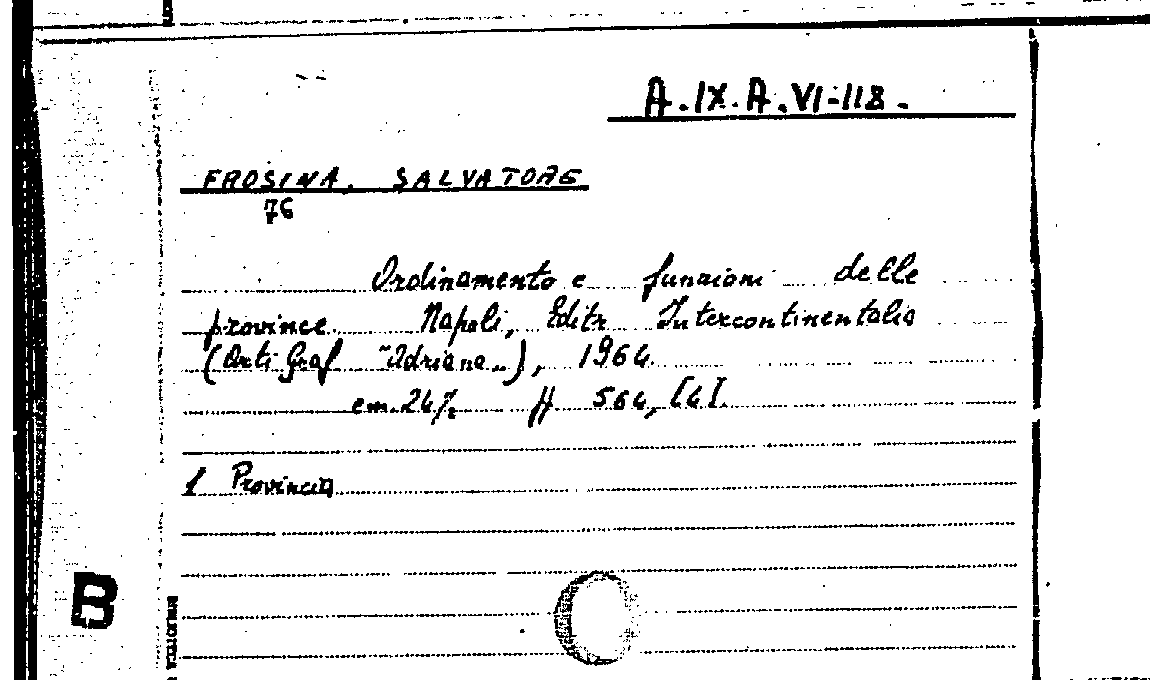 A.IX.A.VI-118.
FROSINA, SALVATORE
76
Ordinamento e funzioni delle
province. Napoli, Editr. Intercontinentalia
(Arti Graf. "Adriana"), 1964.
cm. 24½ pp 564, [4].
1 Provincia
B
BIBLIOTECA